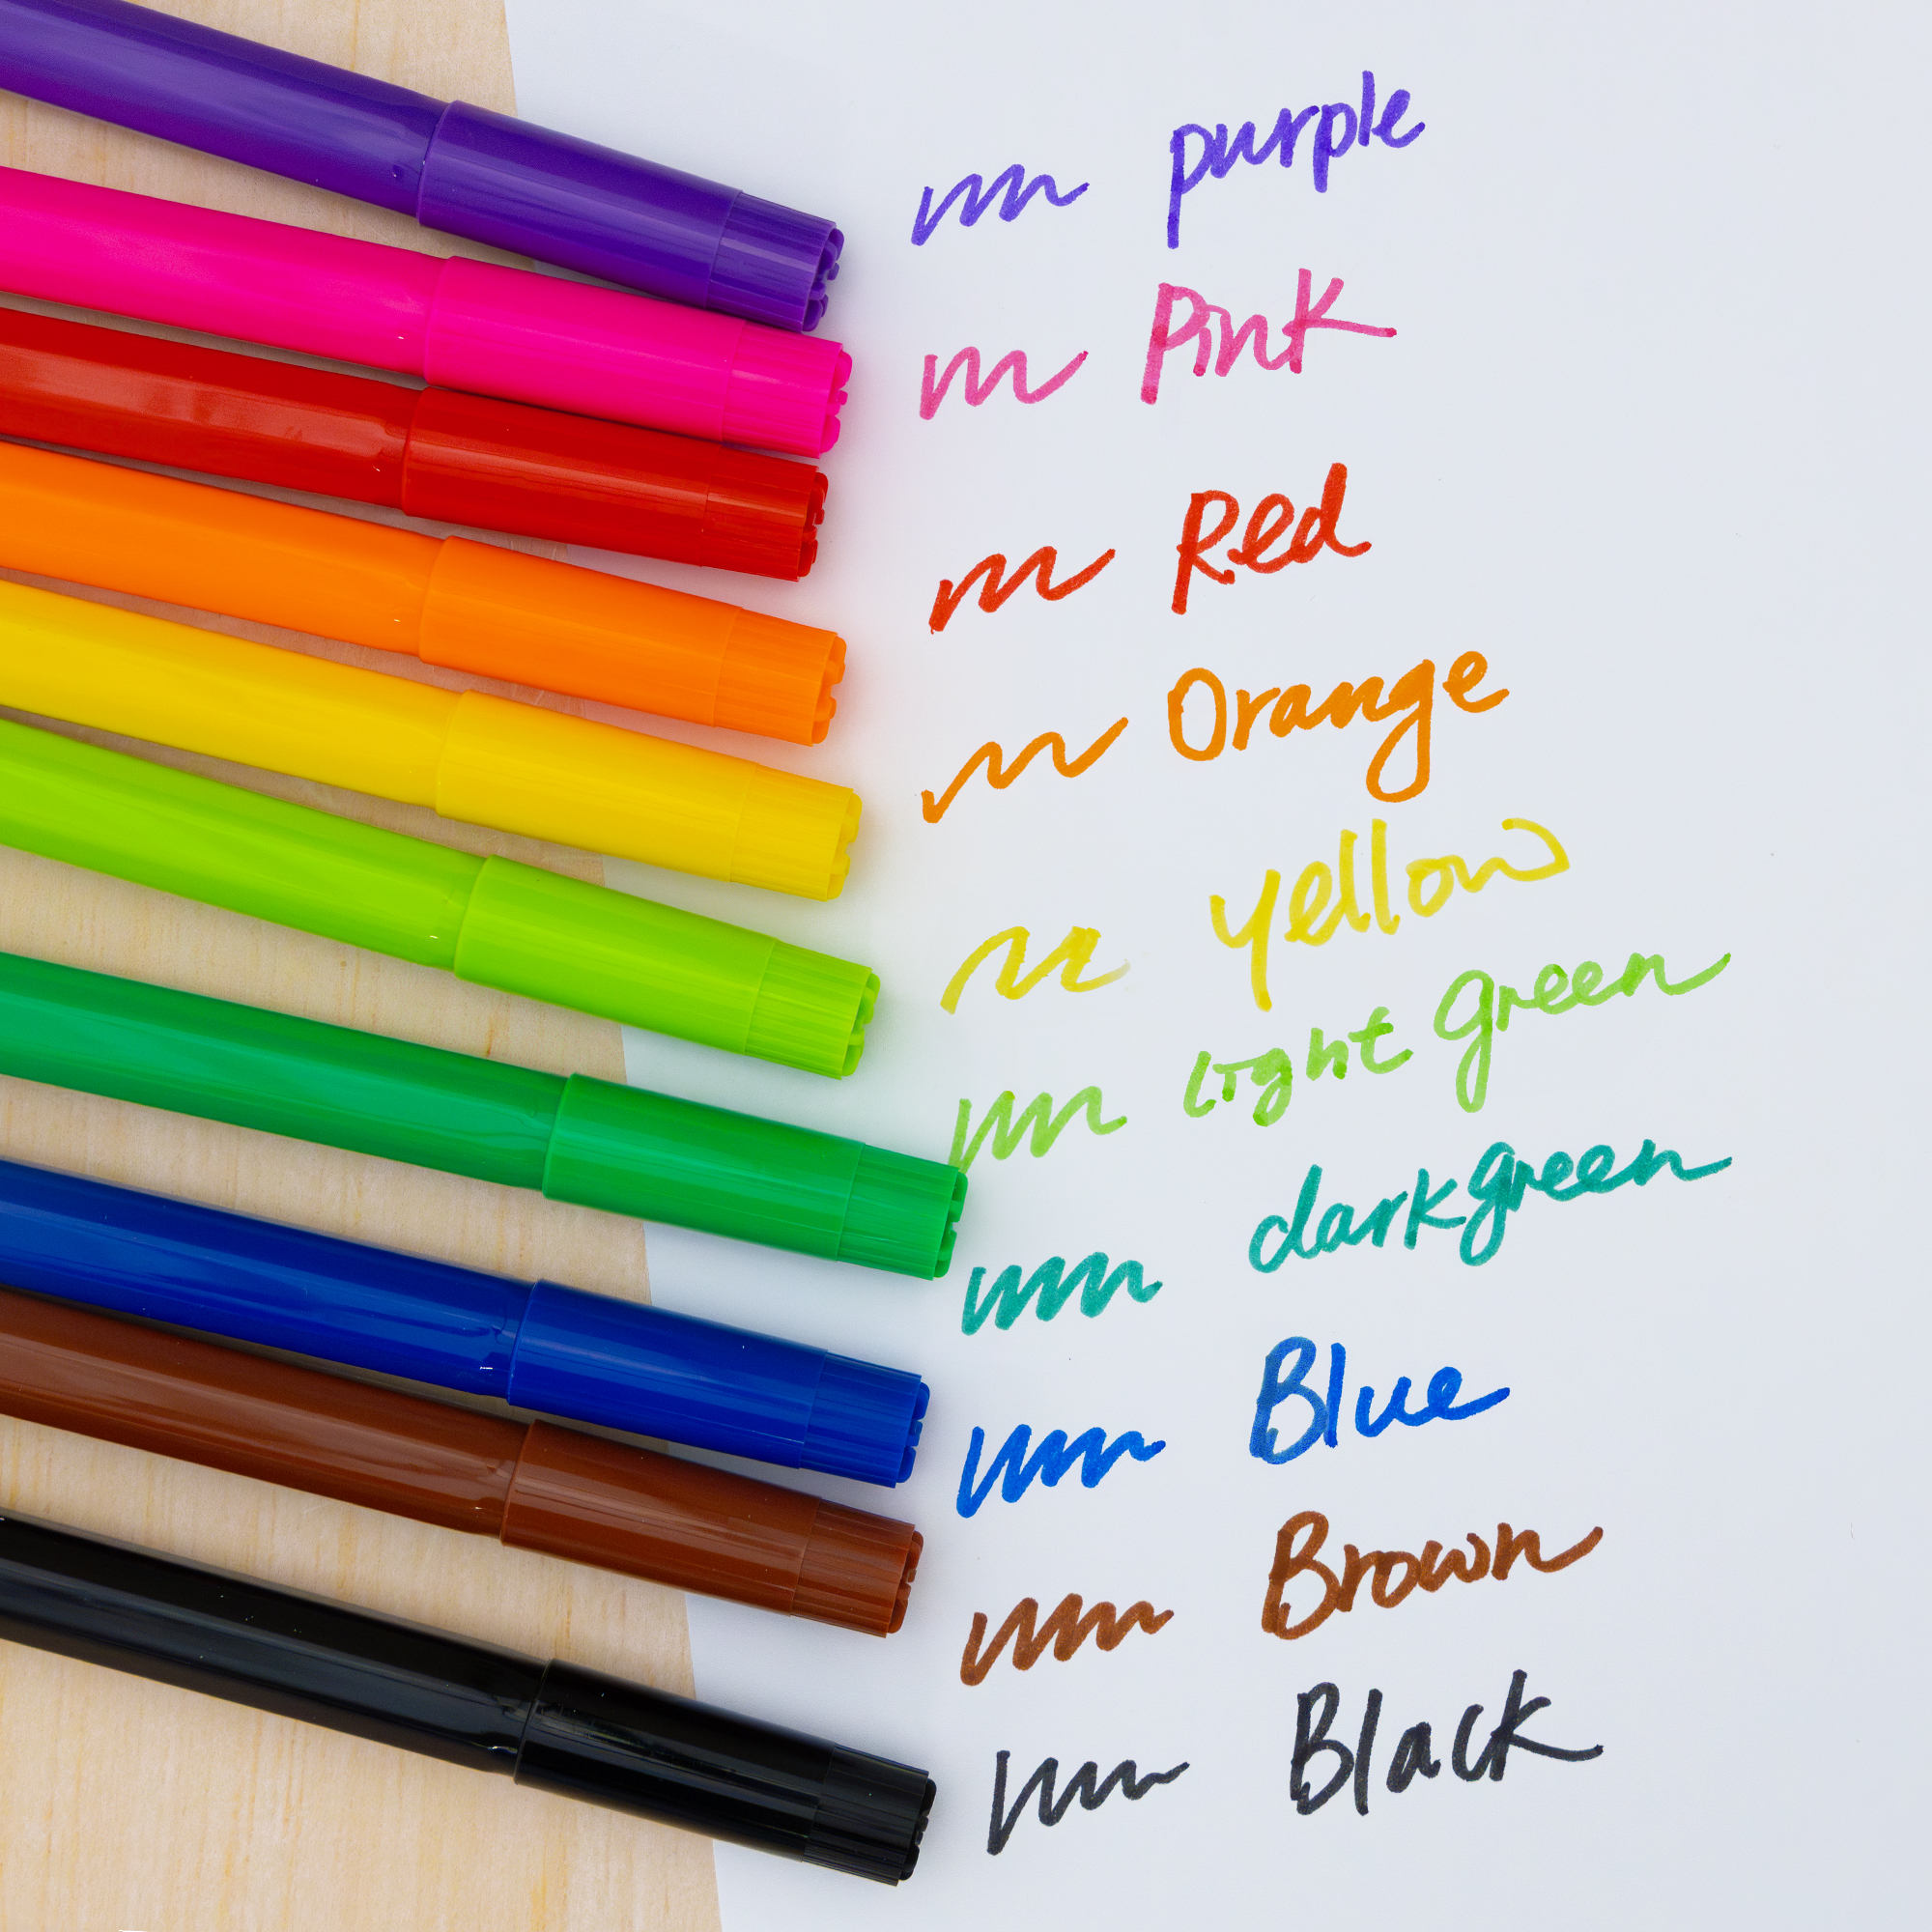 purple
Pink
Red
Orange
yellow
light green
dark green
Blue
Brown
Black